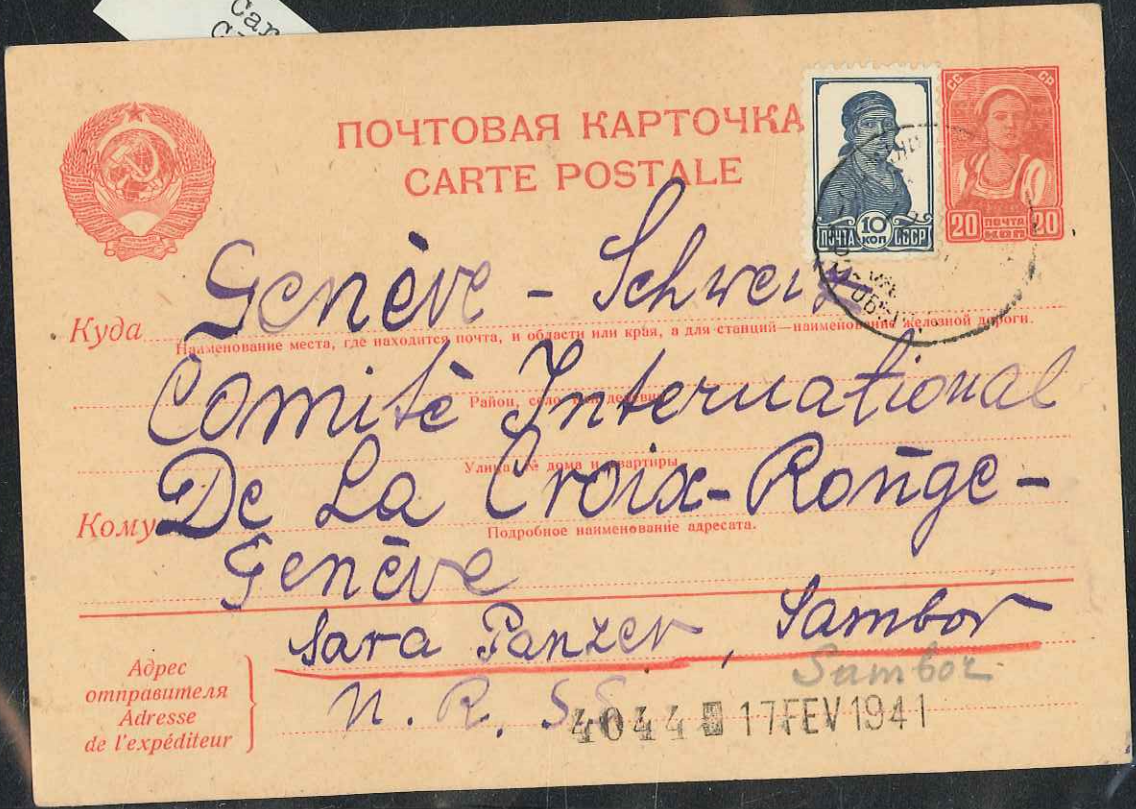 Car
ПОЧТОВАЯ КАРТОЧКА
CARTE POSTALE
СС СР
20 ПОЧТА КОП 20
ПОЧТА 10 КОП СССР
Genève - Schweiz
Куда
Наименование места, где находится почта, и области или края, а для станций—наименование железной дороги.
Comitè International
Район, село или деревня
Улица, № дома и квартиры
De La Croix-Roŭge-
Кому
Подробное наименование адресата.
Genève
Sara Panzer, Sambor
Sambor
Адрес
отправителя
Adresse
de l'expéditeur
N. R. S. S.
4044 17 FEV 1941